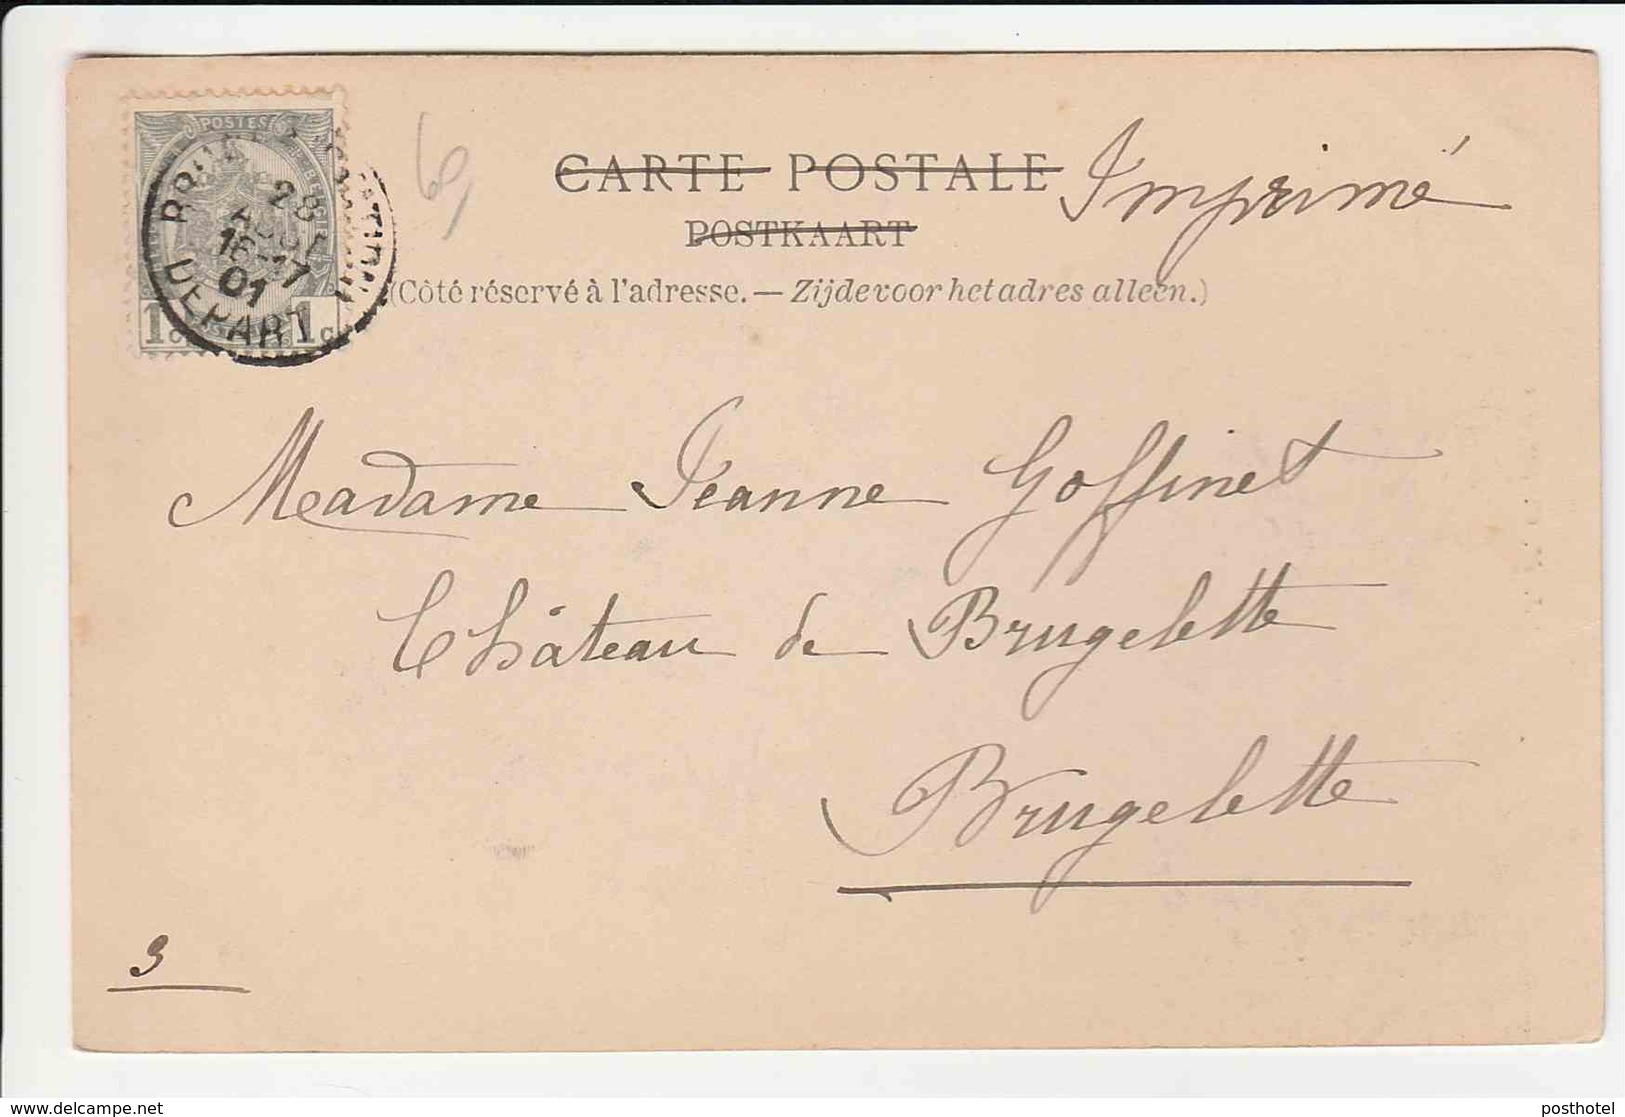 POSTES
28
AOUT
16-17
01
DEPART
1c 1c
CARTE POSTALE Imprimé
POSTKAART
(Côté réservé à l'adresse. — Zijde voor het adres alleen.)
Madame Jeanne Goffinet
Château de Brugelette
Brugelette
3
www.delcampe.net
posthotel